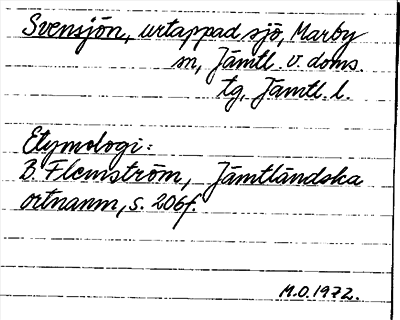 Svensjön, urtappad sjö, Marby
sn, Jämtl. v. doms.
tg, Jämtl. l.
Etymologi:
B. Flemström, Jämtländska
ortnamn, s. 206f.
M.O. 1972.